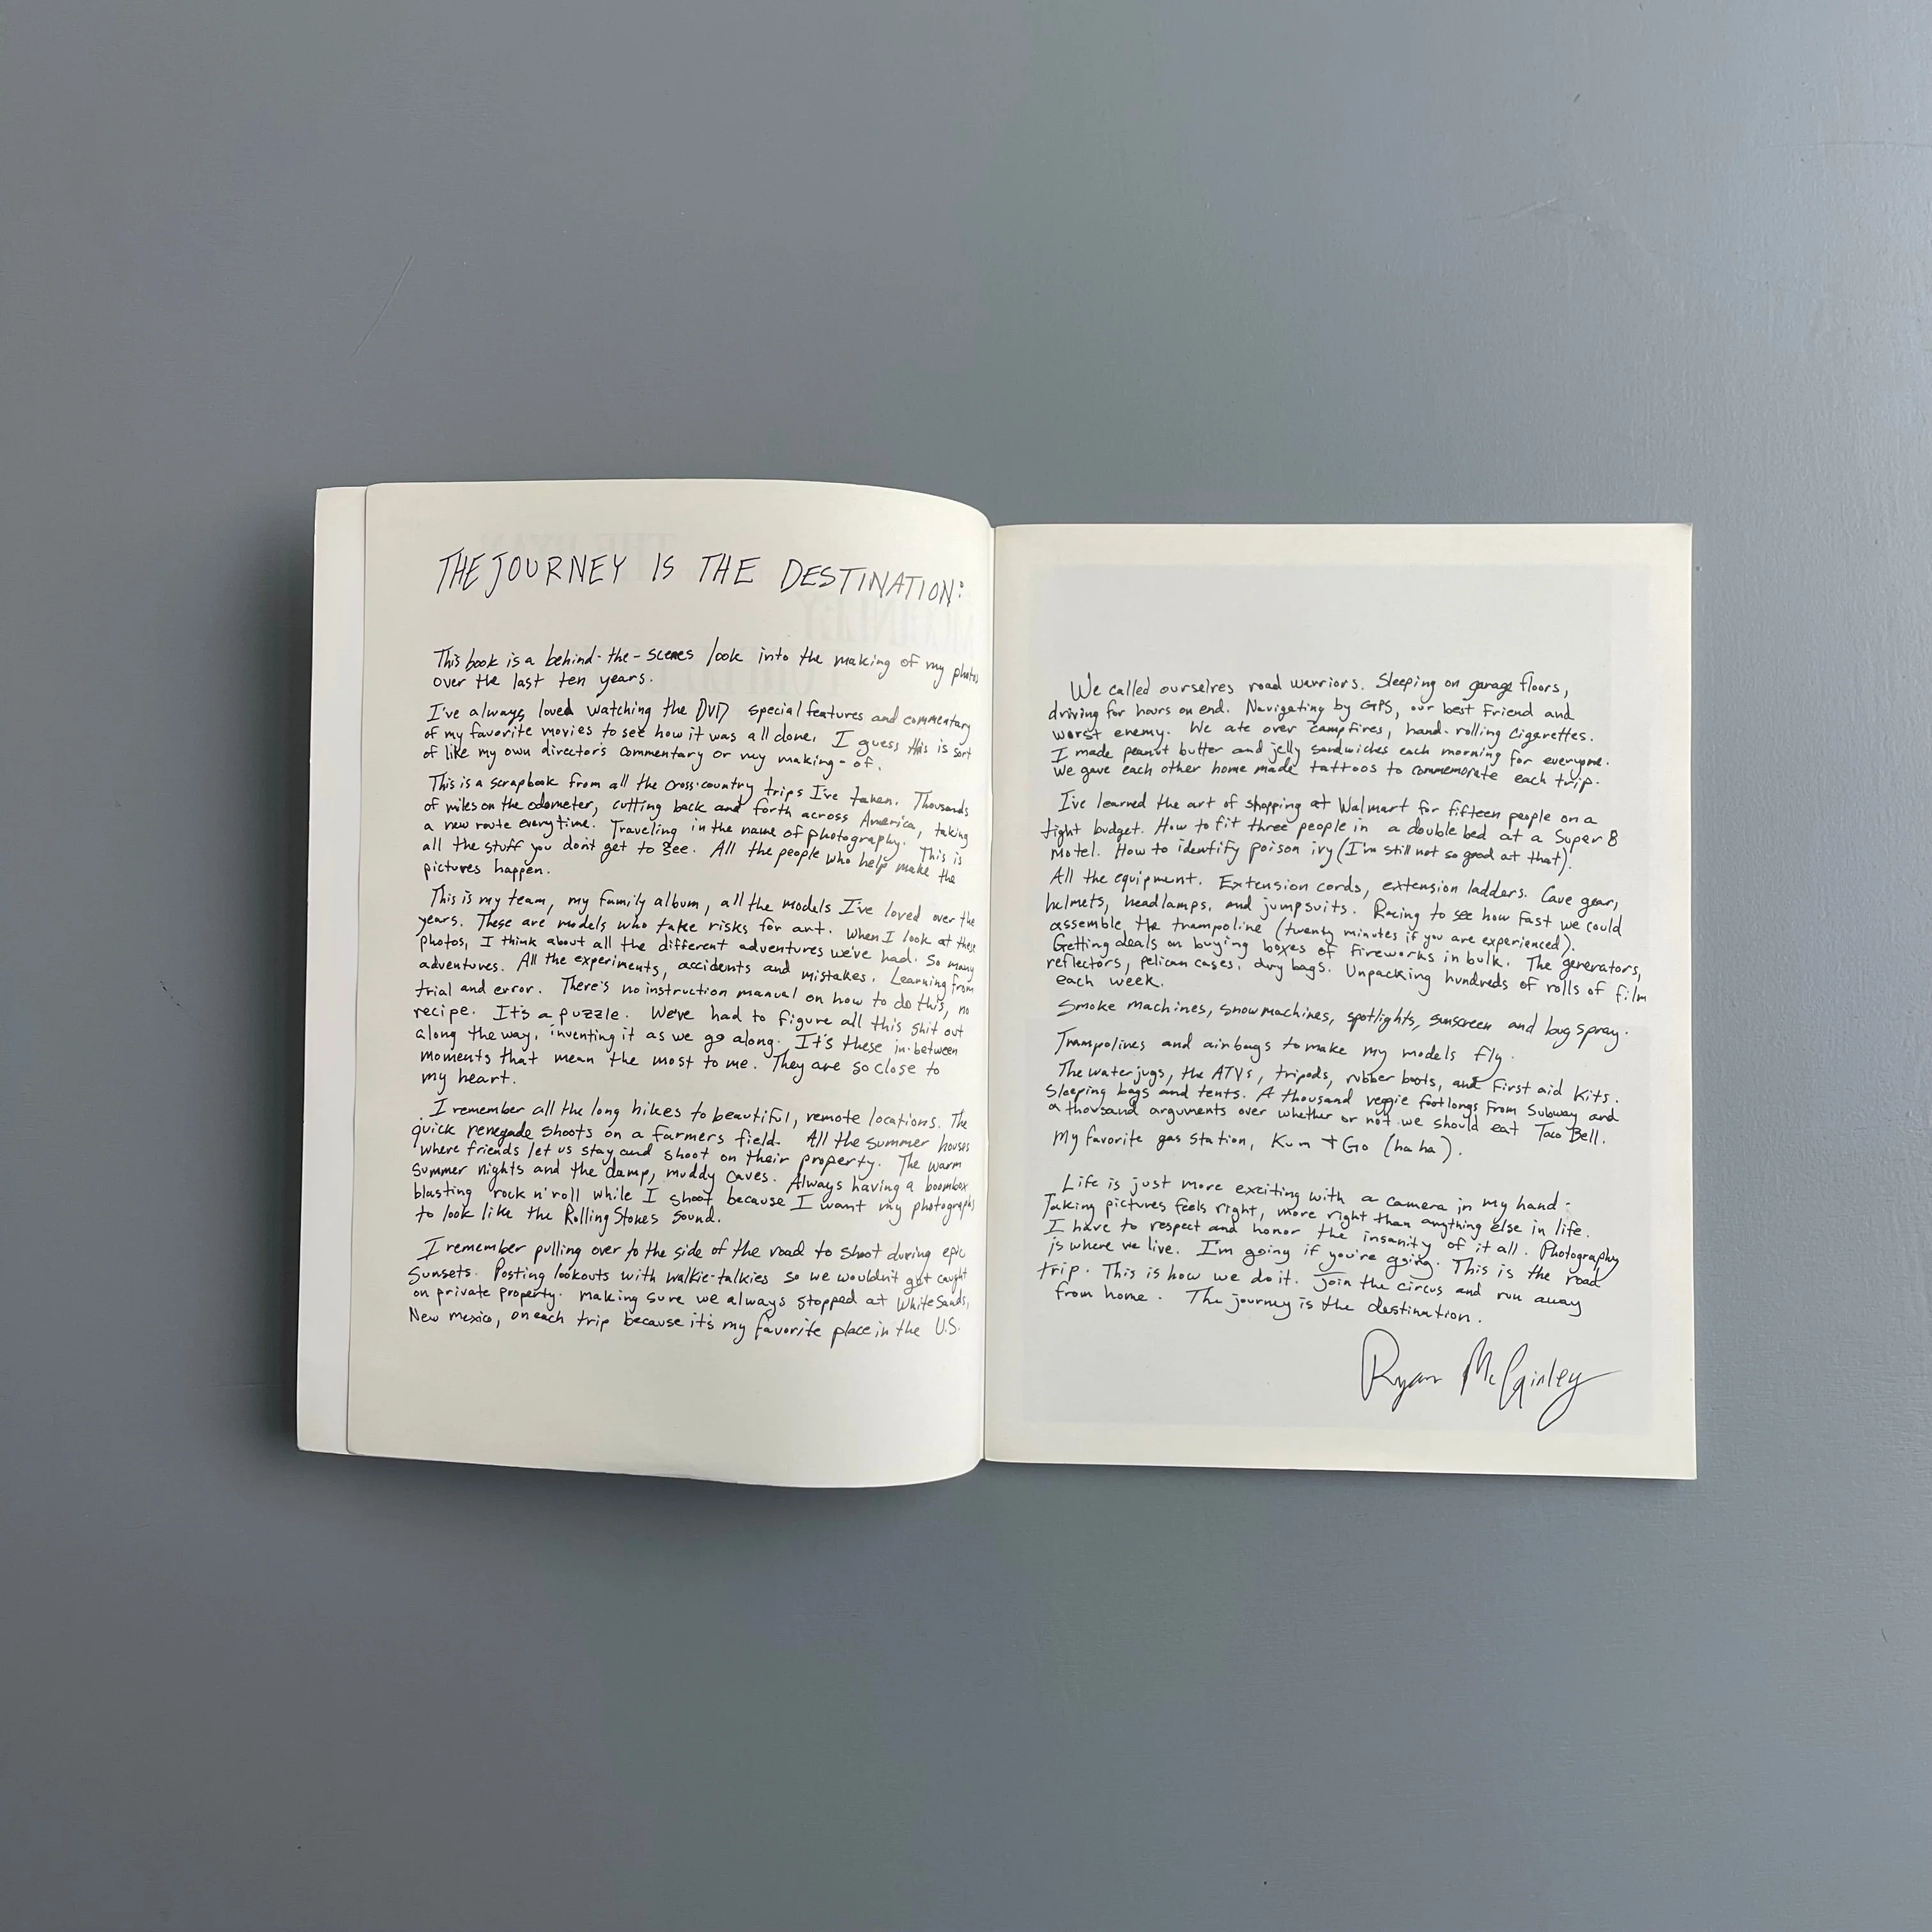 THE JOURNEY IS THE DESTINATION:
This book is a behind-the-scenes look into the making of my photos
over the last ten years.
I've always loved watching the DVD special features and commentary
of my favorite movies to see how it was all done. I guess this is sort
of like my own director's commentary or my making-of.
This is a scrapbook from all the cross-country trips I've taken. Thousands
of miles on the odometer, cutting back and forth across America, taking
a new route everytime. Traveling in the name of photography. This is
all the stuff you don't get to see. All the people who help make the
pictures happen.
This is my team, my family album, all the models I've loved over the
years. These are models who take risks for art. When I look at these
photos, I think about all the different adventures we've had. So many
adventures. All the experiments, accidents and mistakes. Learning from
trial and error. There's no instruction manual on how to do this, no
recipe. It's a puzzle. We've had to figure all this shit out
along the way, inventing it as we go along. It's these in-between
moments that mean the most to me. They are so close to
my heart.
I remember all the long hikes to beautiful, remote locations. The
quick renegade shoots on a farmers field. All the summer houses
where friends let us stay and shoot on their property. The warm
summer nights and the damp, muddy caves. Always having a boombox
blasting rock n' roll while I shoot because I want my photographs
to look like the Rolling Stones sound.
I remember pulling over to the side of the road to shoot during epic
sunsets. Posting lookouts with walkie-talkies so we wouldn't get caught
on private property. Making sure we always stopped at White Sands,
New Mexico, on each trip because it's my favorite place in the U.S.
We called ourselves road warriors. Sleeping on garage floors,
driving for hours on end. Navigating by GPS, our best friend and
worst enemy. We ate over campfires, hand-rolling cigarettes.
I made peanut butter and jelly sandwiches each morning for everyone.
We gave each other home made tattoos to commemorate each trip.
I've learned the art of shopping at Walmart for fifteen people on a
tight budget. How to fit three people in a double bed at a Super 8
Motel. How to identify poison ivy (I'm still not so good at that).
All the equipment. Extension cords, extension ladders. Cave gear,
helmets, headlamps, and jumpsuits. Racing to see how fast we could
assemble the trampoline (twenty minutes if you are experienced).
Getting deals on buying boxes of fireworks in bulk. The generators,
reflectors, pelican cases, dry bags. Unpacking hundreds of rolls of film
each week.
Smoke machines, snow machines, spotlights, sunscreen and bug spray.
Trampolines and airbags to make my models fly.
The water jugs, the ATVs, tripods, rubber boots, and first aid kits.
Sleeping bags and tents. A thousand veggie footlongs from Subway and
a thousand arguments over whether or not we should eat Taco Bell.
My favorite gas station, Kum + Go (ha ha).
Life is just more exciting with a camera in my hand.
Taking pictures feels right, more right than anything else in life.
I have to respect and honor the insanity of it all. Photography
is where we live. I'm going if you're going. This is the road
trip. This is how we do it. Join the circus and run away
from home. The journey is the destination.
Ryan McGinley